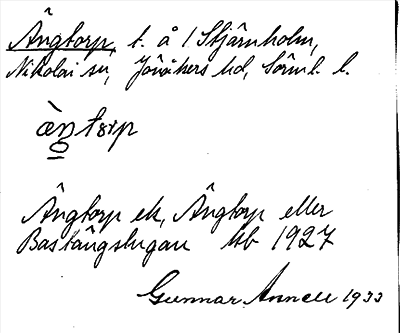 Ängtorp, t. å 1 Stjärnholm,
Nikolai sn, Jönåkers hd, Södml. l.
àŋtɔrp
Ängtorp ek, Ängtorp eller
Bastängstugan hb 1927
Gunnar Annell 1933